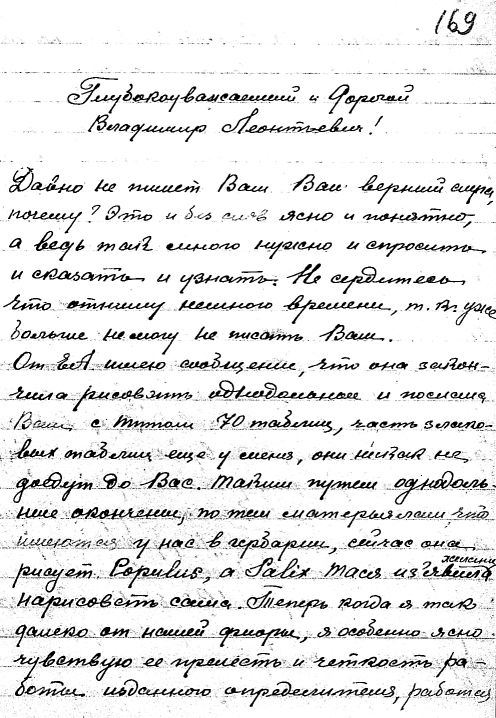 169
Глубокоуважаемый и Дорогой
Владимир Леонтьевич!
Давно не пишет Вам Ваш верный
почему? Это и без слов ясно и понятно,
а ведь так много нужно и спросить
и сказать и узнать. Не сердитесь
что отниму немного времени, т.к. уже
больше немогу не писать Вам.
От ЕА имею сообщение, что она закон-
чила рисовать однодольные и послала
Вам с титом 70 таблиц, часть злако-
вых таблиц еще у меня, они никак не
доедут до Вас. Таким путем однодоль-
ные окончены, по тем материялам что
имеются у нас в гербарии, сейчас она
рисует Populus, а Salix Тася из'явила
желание
нарисовать сама. Теперь когда я так
далеко от нашей флоры, я особенно ясно
чувствую ее прелесть и четкость ра-
боты изданного определителя, работая